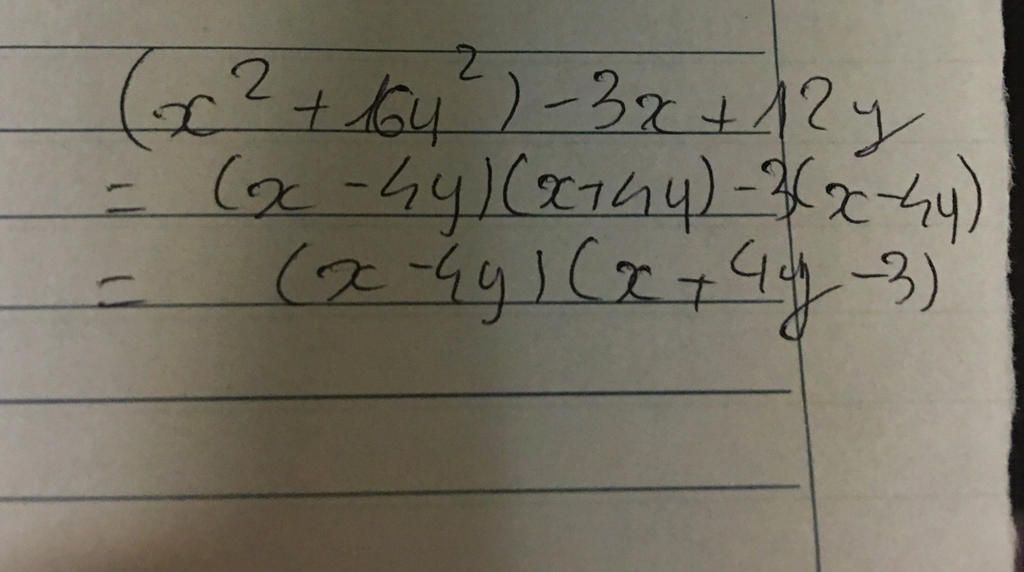 (x² + 16y²) - 3x + 12y
= (x - 4y)(x + 4y) - 3(x - 4y)
= (x - 4y)(x + 4y - 3)